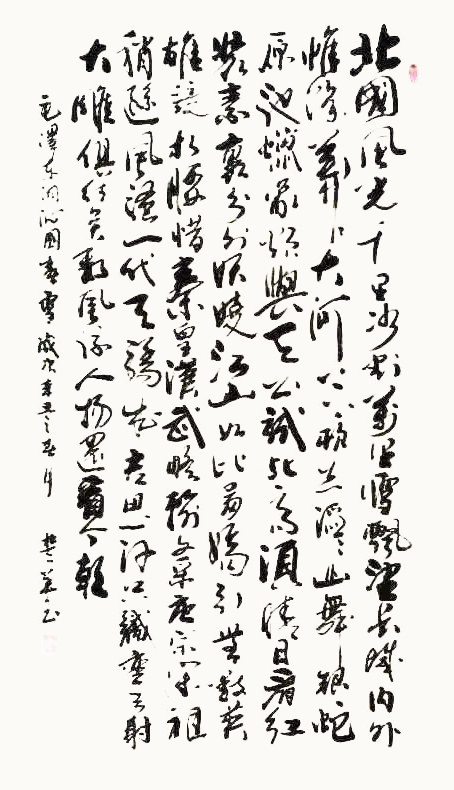 北國風光千里冰封萬里雪飄望長城內外
惟餘莽莽大河上下頓失滔滔山舞銀蛇
原馳蠟象欲與天公試比高須晴日看紅
裝素裹分外妖嬈江山如此多嬌引無數英
雄競折腰惜秦皇漢武略輸文采唐宗宋祖
稍遜風騷一代天驕成吉思汗只識彎弓射
大雕俱往矣數風流人物還看今朝
毛澤東詞沁園春雪歲次辛丑之春月